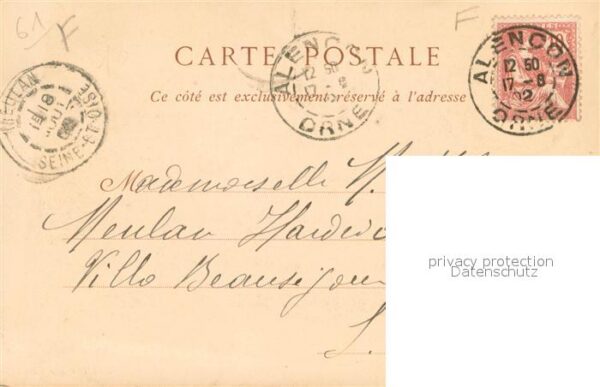 61 F
F
CARTE POSTALE
Ce côté est exclusivement réservé à l'adresse
ALENCON
12 50
17 - 8
02
ORNE
ALENCON
12 50
17 8
ORNE
MEULAN
18
SEINE-ET-OISE
Mademoiselle
Meulan
Villa Beauséjour
privacy protection
Datenschutz